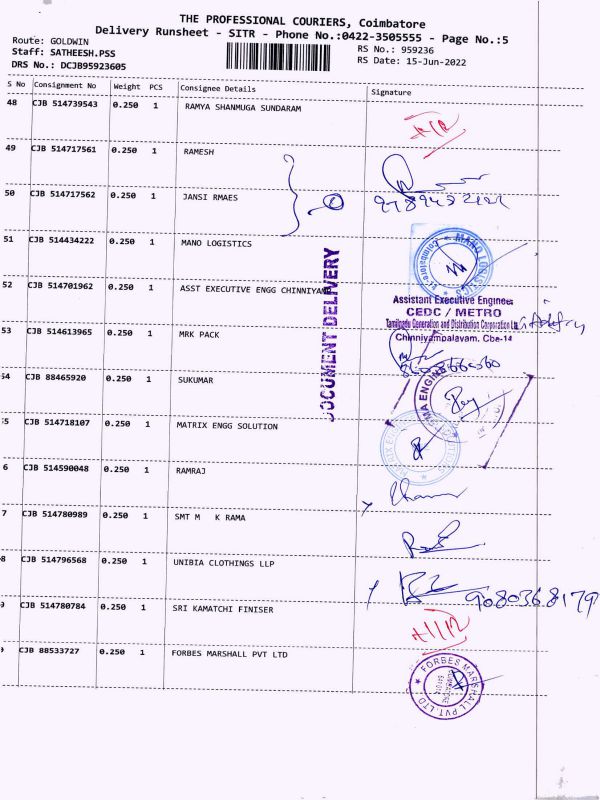 THE PROFESSIONAL COURIERS, Coimbatore
Delivery Runsheet - SITR - Phone No.:0422-3505555 - Page No.:5
Route: GOLDWIN
Staff: SATHEESH.PSS
DRS No.: DCJB95923605
RS No.: 959236
RS Date: 15-Jun-2022
S No Consignment No Weight PCS Consignee Details Signature
48 CJB 514739543 0.250 1 RAMYA SHANMUGA SUNDARAM
49 CJB 514717561 0.250 1 RAMESH
50 CJB 514717562 0.250 1 JANSI RMAES
51 CJB 514434222 0.250 1 MANO LOGISTICS
MANO LOGISTICS
Coimbatore
52 CJB 514701962 0.250 1 ASST EXECUTIVE ENGG CHINNIYAM
DOCUMENT DELIVERY
Assistant Executive Engineer
CEDC / METRO
Tamilnadu Generation and Distribution Corporation Ltd
Chinniyampalayam, Cbe-14
53 CJB 514613965 0.250 1 MRK PACK
54 CJB 88465920 0.250 1 SUKUMAR
55 CJB 514718107 0.250 1 MATRIX ENGG SOLUTION
MATRIX
6 CJB 514590048 0.250 1 RAMRAJ
7 CJB 514780989 0.250 1 SMT M K RAMA
8 CJB 514796568 0.250 1 UNIBIA CLOTHINGS LLP
9080368179
9 CJB 514780784 0.250 1 SRI KAMATCHI FINISER
CJB 88533727 0.250 1 FORBES MARSHALL PVT LTD
FORBES MARSHALL PVT. LTD